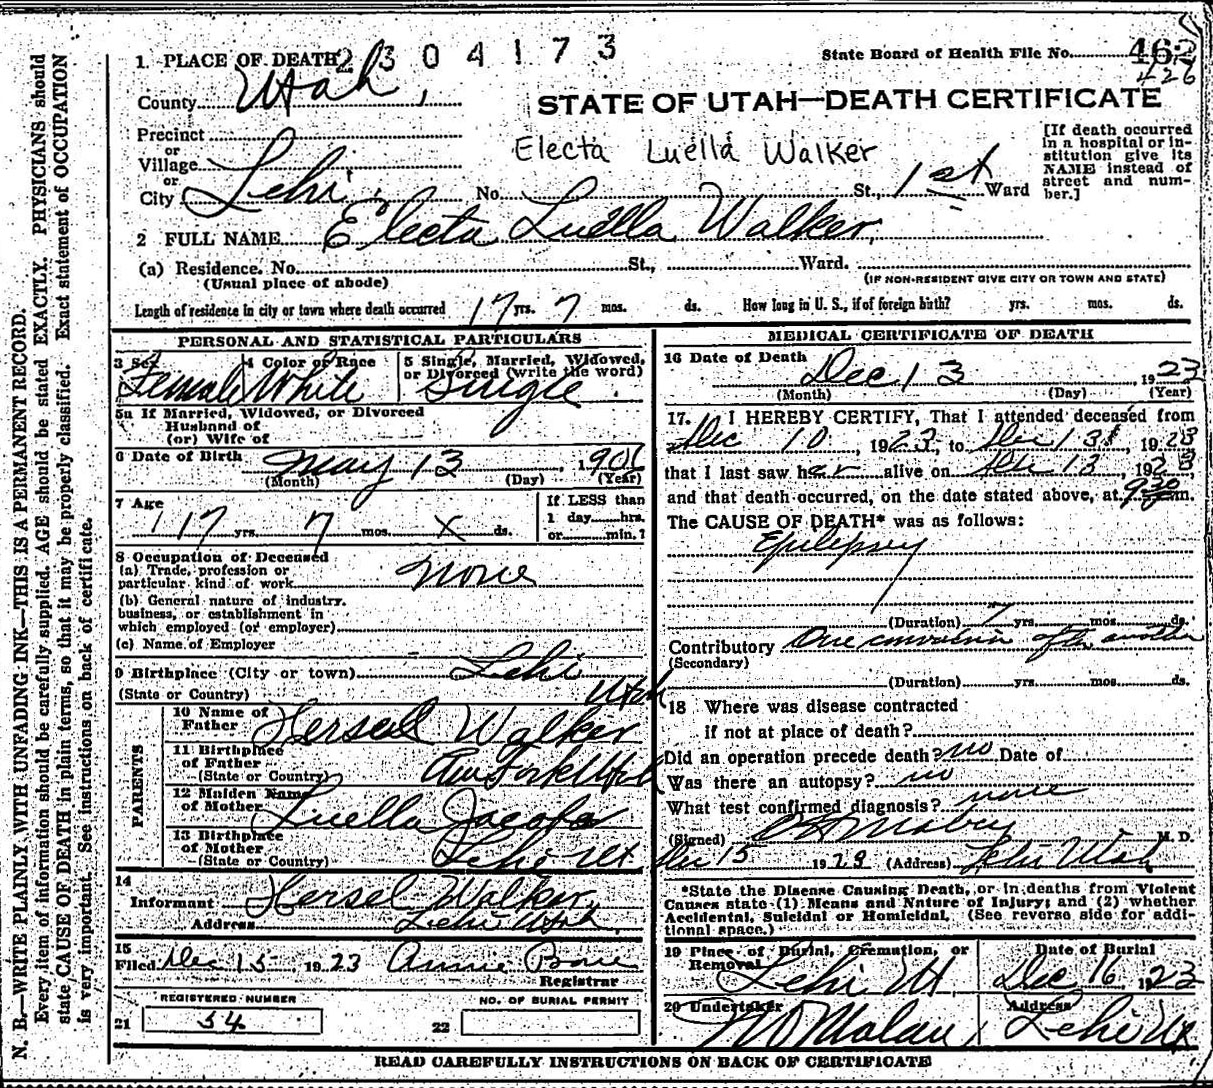 1 PLACE OF DEATH 2 3 0 4 1 7 3
State Board of Health File No. 462
426
County Utah,
STATE OF UTAH—DEATH CERTIFICATE
Precinct
or
Village
or
City Lehi, No. St., 1st Ward
Electa Luella Walker
[If death occurred in a hospital or institution give its NAME instead of street and number.]
2 FULL NAME Electa Luella Walker
(a) Residence. No. St., Ward.
(Usual place of abode) (IF NON-RESIDENT GIVE CITY OR TOWN AND STATE)
Length of residence in city or town where death occurred 17 yrs. 7 mos. ds. How long in U. S., if of foreign birth? yrs. mos. ds.
PERSONAL AND STATISTICAL PARTICULARS
3 Sex 4 Color or Race 5 Single, Married, Widowed,
or Divorced (write the word)
Female White Single
5a If Married, Widowed, or Divorced
Husband of
(or) Wife of
6 Date of Birth May 13, 1906
(Month) (Day) (Year)
7 Age If LESS than
17 yrs. 7 mos. X ds. 1 day hrs.
or min.?
8 Occupation of Deceased
(a) Trade, profession or
particular kind of work None
(b) General nature of industry,
business, or establishment in
which employed (or employer)
(c) Name of Employer
9 Birthplace (City or town) Lehi
(State or Country) Utah
PARENTS
10 Name of
Father Hersel Walker
11 Birthplace
of Father
(State or Country) Am Fork Utah
12 Maiden Name
of Mother Luella Jacobs
13 Birthplace
of Mother
(State or Country) Lehi Ut
14
Informant Hersel Walker
Address Lehi Utah
15
Filed Dec 15, 1923 Annie
Registrar
REGISTERED NUMBER NO. OF BURIAL PERMIT
21 54 22
MEDICAL CERTIFICATE OF DEATH
16 Date of Death Dec 13, 1923
(Month) (Day) (Year)
17. I HEREBY CERTIFY, That I attended deceased from
Dec 10, 1923, to Dec 13, 1923
that I last saw her alive on Dec 13, 1923,
and that death occurred, on the date stated above, at 9 30 m.
The CAUSE OF DEATH* was as follows:
Epilepsy
(Duration) 7 yrs. mos. ds.
Contributory One convulsion after another
(Secondary)
(Duration) yrs. mos. ds.
18 Where was disease contracted
if not at place of death?
Did an operation precede death? no Date of
Was there an autopsy? no
What test confirmed diagnosis? none
(Signed) M. D.
Dec 15 1923 (Address) Lehi Utah
*State the Disease Causing Death, or in deaths from Violent
Causes state (1) Means and Nature of Injury; and (2) whether
Accidental, Suicidal or Homicidal. (See reverse side for additional space.)
19 Place of Burial, Cremation, or Date of Burial
Removal
Lehi Ut Dec 16, 1923
20 Undertaker Address
Lehi Ut
READ CAREFULLY INSTRUCTIONS ON BACK OF CERTIFICATE
N. B.—WRITE PLAINLY WITH UNFADING INK—THIS IS A PERMANENT RECORD.
Every item of information should be carefully supplied. AGE should be stated EXACTLY. PHYSICIANS should
state CAUSE OF DEATH in plain terms, so that it may be properly classified. Exact statement of OCCUPATION
is very important. See instructions on back of certificate.